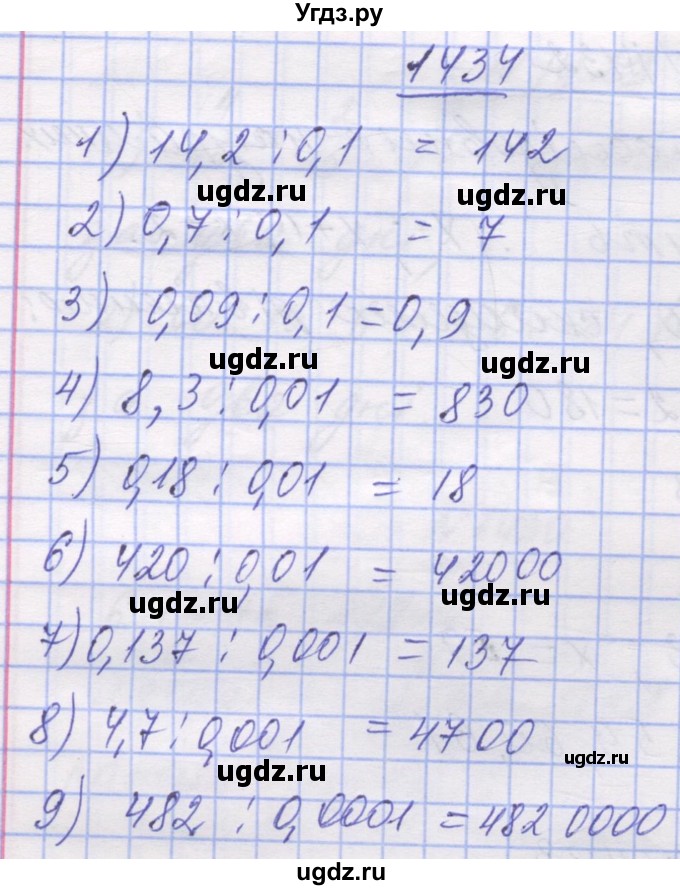 Угдз.ру
1434
1) 14,2 : 0,1 = 142
ugdz.ru ugdz.ru
2) 0,7 : 0,1 = 7
3) 0,09 : 0,1 = 0,9
ugdz.ru ugdz.ru
4) 8,3 : 0,01 = 830
5) 0,18 : 0,01 = 18
6) 420 : 0,01 = 42000
ugdz.ru ugdz.ru
7) 0,137 : 0,001 = 137
8) 4,7 : 0,001 = 4700
ugdz.ru ugdz.ru
9) 482 : 0,0001 = 482 0000
ugdz.ru